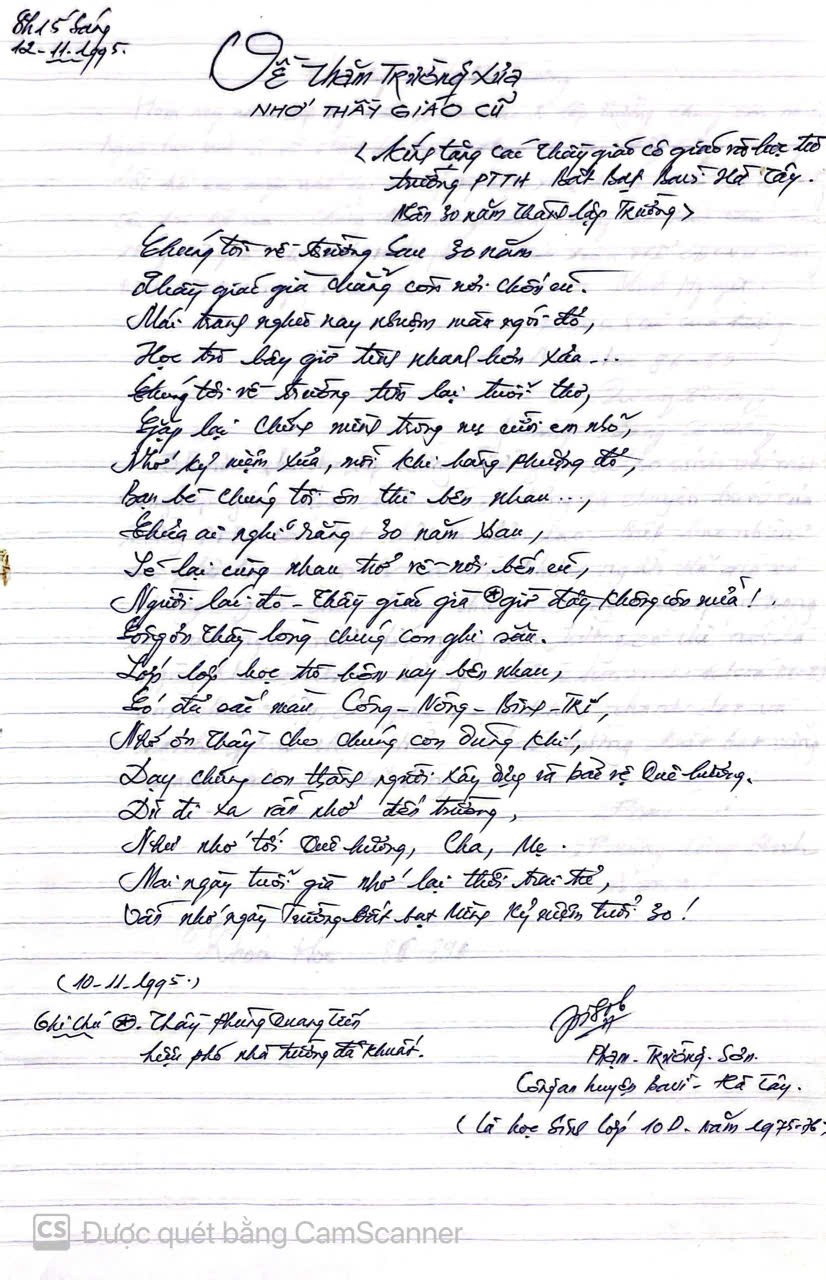 8h15 sáng
12-11-1995.
Về thăm Trường xưa
NHỚ THẦY GIÁO CŨ
< Kính tặng các thầy giáo cô giáo và học trò
trường PTTH Bất Bạt Bavì Hà Tây.
Nhân 30 năm thành lập Trường >
Chúng tôi về trường sau 30 năm
Thầy giáo già chẳng còn nơi chốn cũ.
Mái tranh nghèo nay nhuộm màu ngói đỏ,
Học trò bây giờ tinh nhanh hơn xưa...
Chúng tôi về trường tìm lại tuổi thơ,
Gặp lại chính mình trong nụ cười em nhỏ,
Nhớ kỷ niệm xưa, mỗi khi hàng phượng đỏ,
Bạn bè chúng tôi ôn thi bên nhau...,
Chưa ai nghĩ rằng 30 năm sau,
Sẽ lại cùng nhau trở về nơi bến cũ,
Người lái đò - Thầy giáo già ⊛ giờ đây không còn nữa!.
Công ơn thầy lòng chúng con ghi sâu.
Lớp lớp học trò hôm nay bên nhau,
Có đủ sắc màu Công - Nông - Binh - Trí,
Nhớ ơn thầy cho chúng con dũng khí,
Dạy chúng con thành người xây dựng và bảo vệ Quê hương.
Dù đi xa vẫn nhớ đến trường,
Như nhớ tới Quê hương, Cha, Mẹ.
Mai ngày tuổi già nhớ lại thời trai trẻ,
Vẫn nhớ ngày Trường Bất bạt Mừng kỷ niệm tuổi 30!
(10-11-1995.)
Ghi chú ⊛. Thầy Phùng Quang Tiến
hiệu phó nhà trường đã khuất.
Phạm - Trường - Sơn.
Công an huyện Bavì - Hà Tây.
(là học sinh lớp 10D - năm 1975-76)
CS Được quét bằng CamScanner